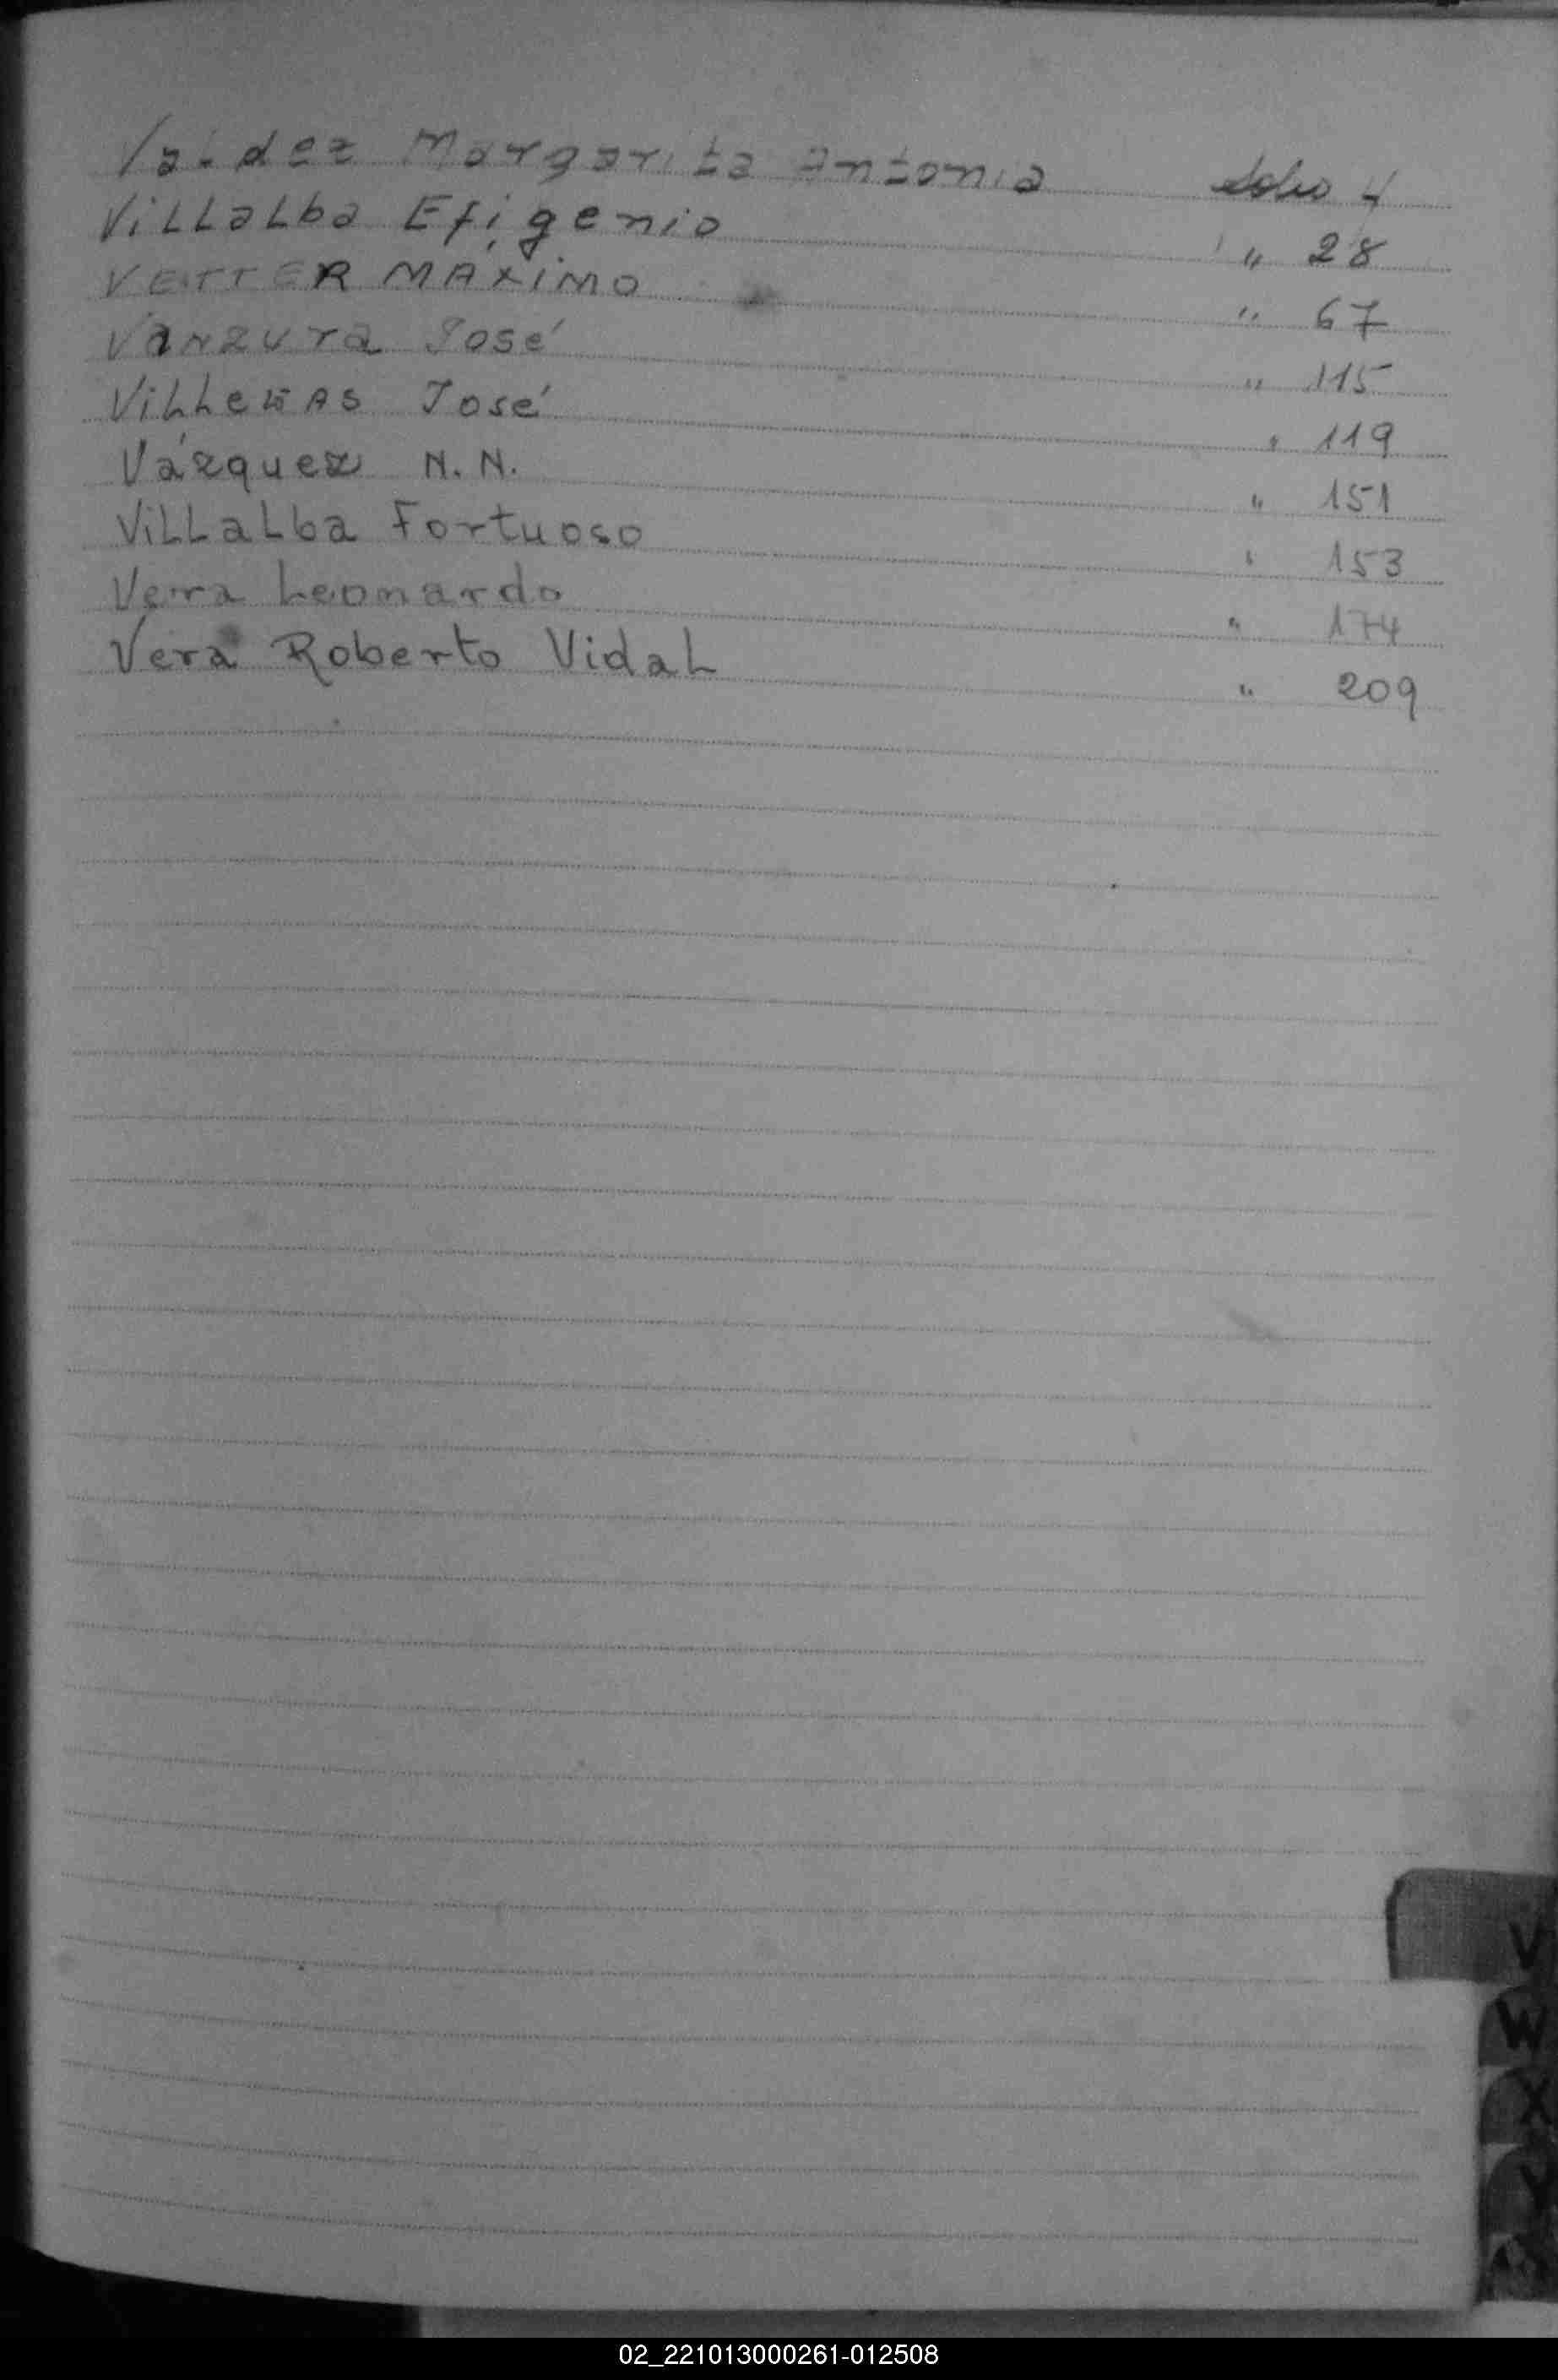 Valdez Margarita Antonia folio 4
ViLLaLba Efigenio " 28
VETTER MAXIMO " 67
Vanzura José " 115
José " 119
Vázquez N. N. " 151
ViLLaLba Fortuoso " 153
Vera Leonardo " 174
Vera Roberto VidaL " 209
V
W
X
Y
02_221013000261-012508